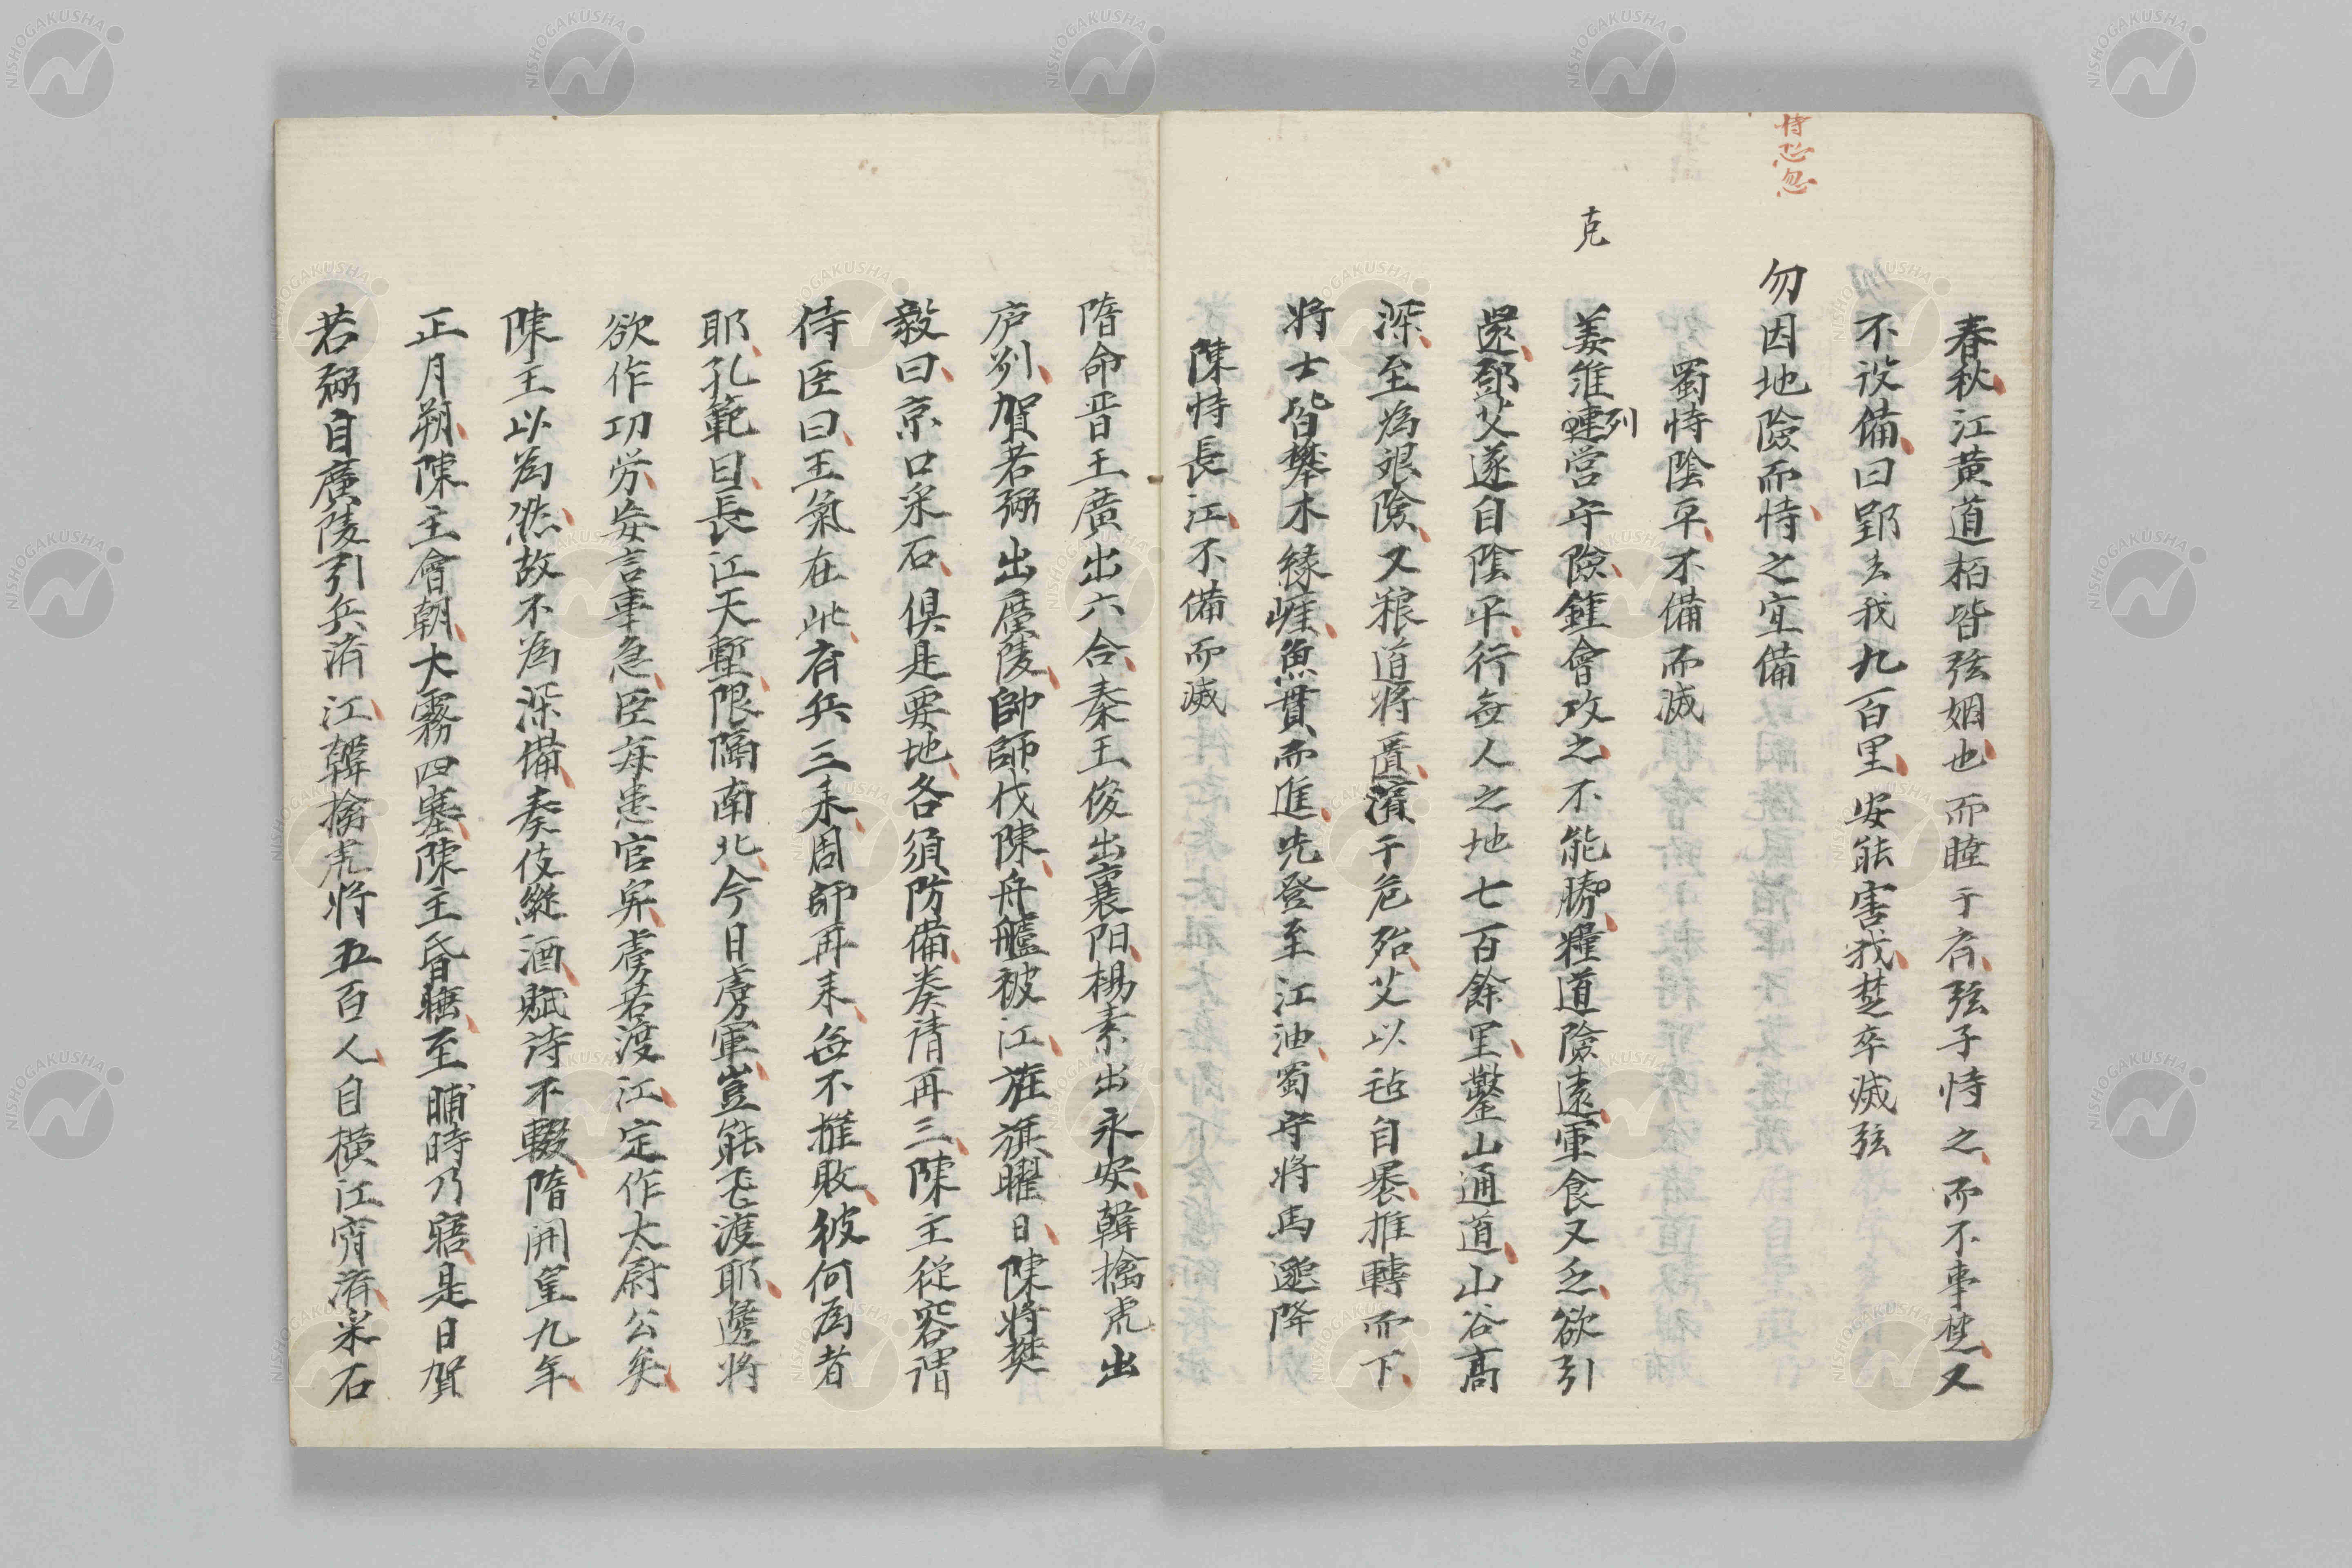 恃忽忽
克
春秋江黄道柏皆弦姻也而睦于斉弦子恃之而不事楚又
不設備曰郢去我九百里安能害我楚卒滅弦
勿因地險而恃之宜備
蜀恃陰平不備而滅
姜維連列営守險鍾會攻之不能勝糧道險遠軍食又乏欲引
還鄧艾遂自陰平行無人之地七百餘里鑿山通道山谷高
深至為艱險又粮道将匱濱于危殆艾以毡自裹推轉而下
将士皆攀木縁崖魚貫而進先登至江油蜀守将馬邈降
陳恃長江不備而滅
隋命晋王廣出六合秦王俊出襄阳楊素出永安韓擒虎出
庐州賀若弼出廣陵帥師伐陳舟艫被江旌旗曜日陳将樊
毅曰京口采石俱是要地各須防備奏請再三陳主從容謂
侍臣曰王氣在此斉兵三来周師再来無不摧敗彼何為者
耶孔範曰長江天塹限隔南北今日虜軍豈能飛渡耶邊将
欲作功労妄言事急臣毎患官卑虜若渡江定作太尉公矣
陳主以為然故不為深備奏伎縦酒賦詩不輟隋開皇九年
正月朔陳主會朝大霧四塞陳主昏睡至晡時乃寤是日賀
若弼自廣陵引兵済江韓擒虎将五百人自横江宵済采石